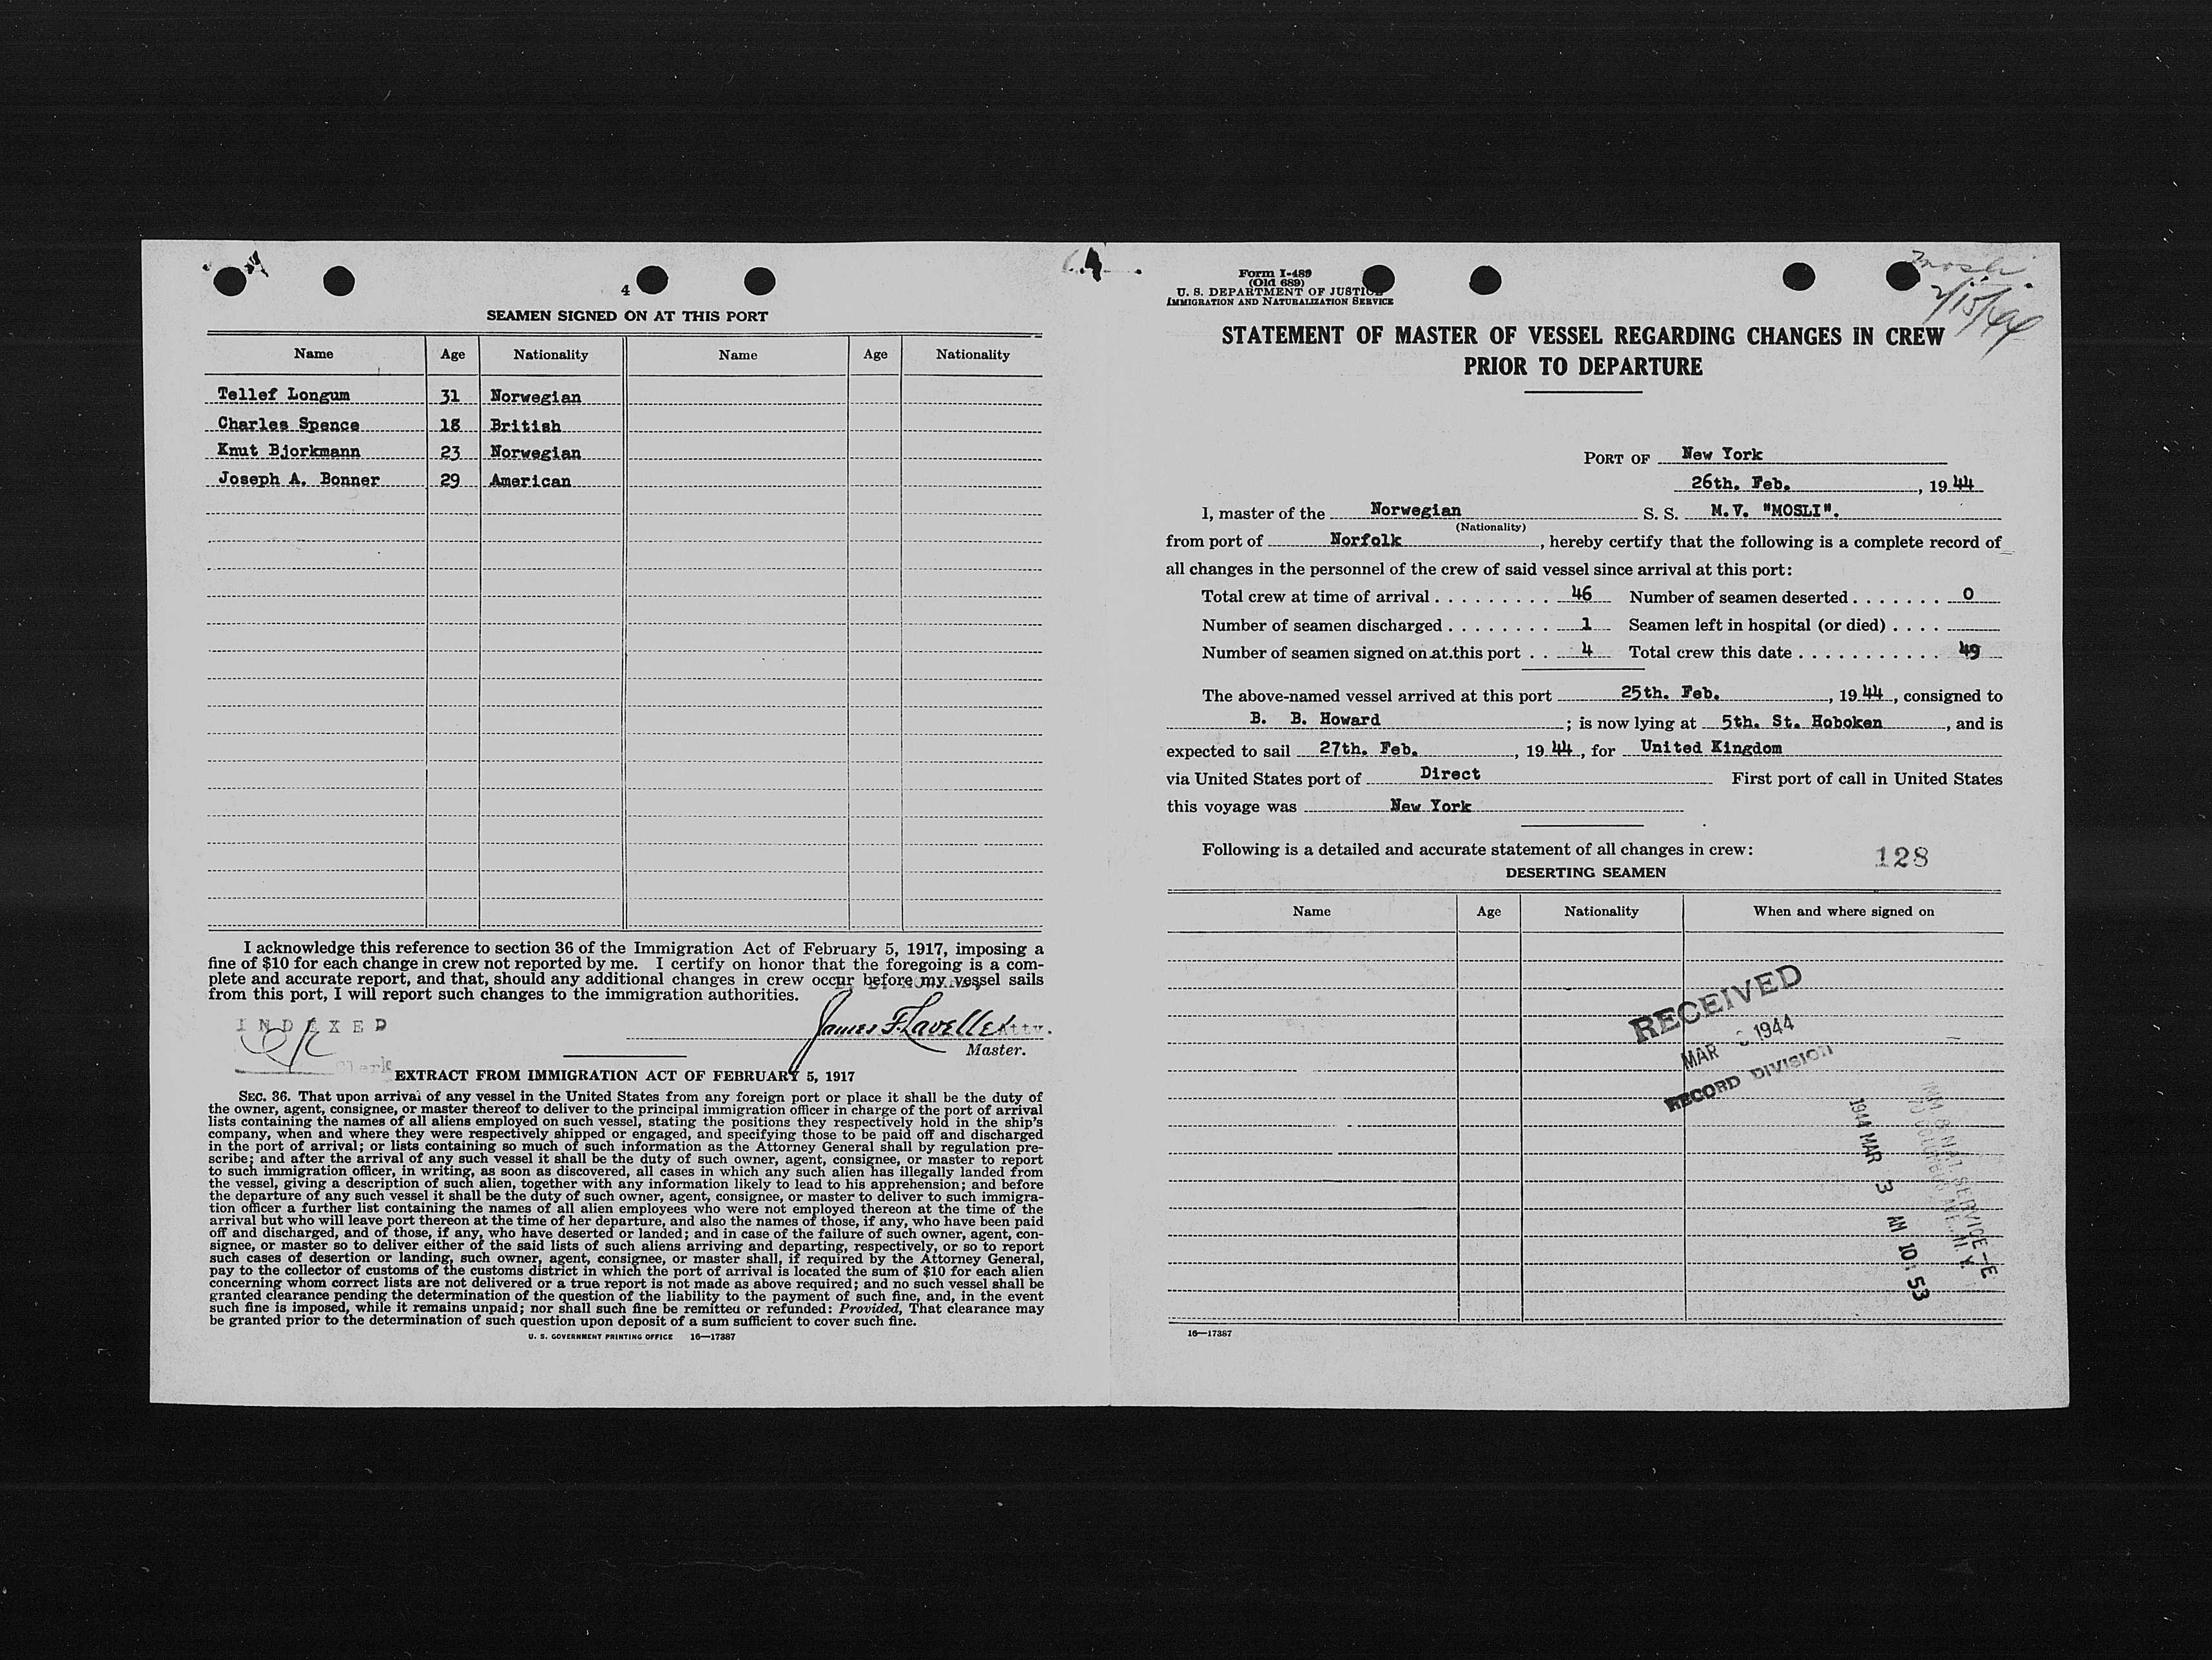 4
SEAMEN SIGNED ON AT THIS PORT
Name Age Nationality Name Age Nationality
Tellef Longum 31 Norwegian
Charles Spence 18 British
Knut Bjorkmann 23 Norwegian
Joseph A. Bonner 29 American
I acknowledge this reference to section 36 of the Immigration Act of February 5, 1917, imposing a
fine of $10 for each change in crew not reported by me. I certify on honor that the foregoing is a com-
plete and accurate report, and that, should any additional changes in crew occur before my vessel sails
from this port, I will report such changes to the immigration authorities.
INDEXED
James F. Lavelle Atty.
Master.
Clerk
EXTRACT FROM IMMIGRATION ACT OF FEBRUARY 5, 1917
SEC. 36. That upon arrival of any vessel in the United States from any foreign port or place it shall be the duty of
the owner, agent, consignee, or master thereof to deliver to the principal immigration officer in charge of the port of arrival
lists containing the names of all aliens employed on such vessel, stating the positions they respectively hold in the ship's
company, when and where they were respectively shipped or engaged, and specifying those to be paid off and discharged
in the port of arrival; or lists containing so much of such information as the Attorney General shall by regulation pre-
scribe; and after the arrival of any such vessel it shall be the duty of such owner, agent, consignee, or master to report
to such immigration officer, in writing, as soon as discovered, all cases in which any such alien has illegally landed from
the vessel, giving a description of such alien, together with any information likely to lead to his apprehension; and before
the departure of any such vessel it shall be the duty of such owner, agent, consignee, or master to deliver to such immigra-
tion officer a further list containing the names of all alien employees who were not employed thereon at the time of the
arrival but who will leave port thereon at the time of her departure, and also the names of those, if any, who have been paid
off and discharged, and of those, if any, who have deserted or landed; and in case of the failure of such owner, agent, con-
signee, or master so to deliver either of the said lists of such aliens arriving and departing, respectively, or so to report
such cases of desertion or landing, such owner, agent, consignee, or master shall, if required by the Attorney General,
pay to the collector of customs of the customs district in which the port of arrival is located the sum of $10 for each alien
concerning whom correct lists are not delivered or a true report is not made as above required; and no such vessel shall be
granted clearance pending the determination of the question of the liability to the payment of such fine, and, in the event
such fine is imposed, while it remains unpaid; nor shall such fine be remitted or refunded: Provided, That clearance may
be granted prior to the determination of such question upon deposit of a sum sufficient to cover such fine.
U. S. GOVERNMENT PRINTING OFFICE 16—17387
Form I-489
(Old 689)
U. S. DEPARTMENT OF JUSTICE
IMMIGRATION AND NATURALIZATION SERVICE
Mosli
2/15/44
STATEMENT OF MASTER OF VESSEL REGARDING CHANGES IN CREW
PRIOR TO DEPARTURE
PORT OF New York
26th. Feb. , 19 44
I, master of the Norwegian S. S. M.V. "MOSLI".
(Nationality)
from port of Norfolk , hereby certify that the following is a complete record of
all changes in the personnel of the crew of said vessel since arrival at this port:
Total crew at time of arrival . . . . . . . . . 46 Number of seamen deserted . . . . . . . 0
Number of seamen discharged . . . . . . . . 1 Seamen left in hospital (or died) . . . .
Number of seamen signed on at this port . . 4 Total crew this date . . . . . . . . . . . 49
The above-named vessel arrived at this port 25th. Feb. , 19 44 , consigned to
B. B. Howard ; is now lying at 5th. St. Hoboken , and is
expected to sail 27th. Feb. , 19 44 , for United Kingdom
via United States port of Direct First port of call in United States
this voyage was New York
Following is a detailed and accurate statement of all changes in crew:
128
DESERTING SEAMEN
Name Age Nationality When and where signed on
RECEIVED
MAR 1944
RECORD DIVISION
IMM & NAT. SERVICE
1944 MAR 3 AM 10 53
16—17387